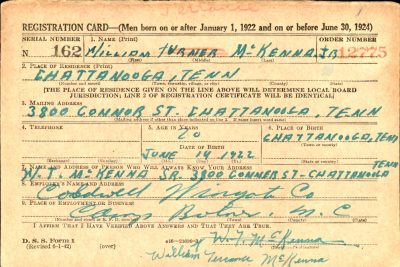 REGISTRATION CARD—(Men born on or after January 1, 1922 and on or before June 30, 1924)
SERIAL NUMBER 1. NAME (Print) ORDER NUMBER
N 162 WILLIAM TURNER McKENNA JR 12775
(First) (Middle) (Last)
2. PLACE OF RESIDENCE (Print)
CHATTANOOGA, TENN.
(State)
[THE PLACE OF RESIDENCE GIVEN ON THE LINE ABOVE WILL DETERMINE LOCAL BOARD
JURISDICTION; LINE 2 OF REGISTRATION CERTIFICATE WILL BE IDENTICAL]
3. MAILING ADDRESS
3800 CONNOR ST. CHATTANOOGA, TENN
[Mailing address if other than place indicated on line 2. If same insert word same]
4. TELEPHONE 5. AGE IN YEARS 6. PLACE OF BIRTH
20 CHATTANOOGA, TENN
DATE OF BIRTH
JUNE 14 1922
(Exchange) (Number) (Mo.) (Day) (Yr.) (State or country)
7. NAME AND ADDRESS OF PERSON WHO WILL ALWAYS KNOW YOUR ADDRESS TENN
W. T. McKENNA SR. 3800 CONNER ST - CHATTANOOGA
8. EMPLOYER'S NAME AND ADDRESS
Co
9. PLACE OF EMPLOYMENT OR BUSINESS
Camp
I AFFIRM THAT I HAVE VERIFIED ABOVE ANSWERS AND THAT THEY ARE TRUE.
D. S. S. Form 1
(Revised 6-1-42) W. T. McKenna
William McKenna